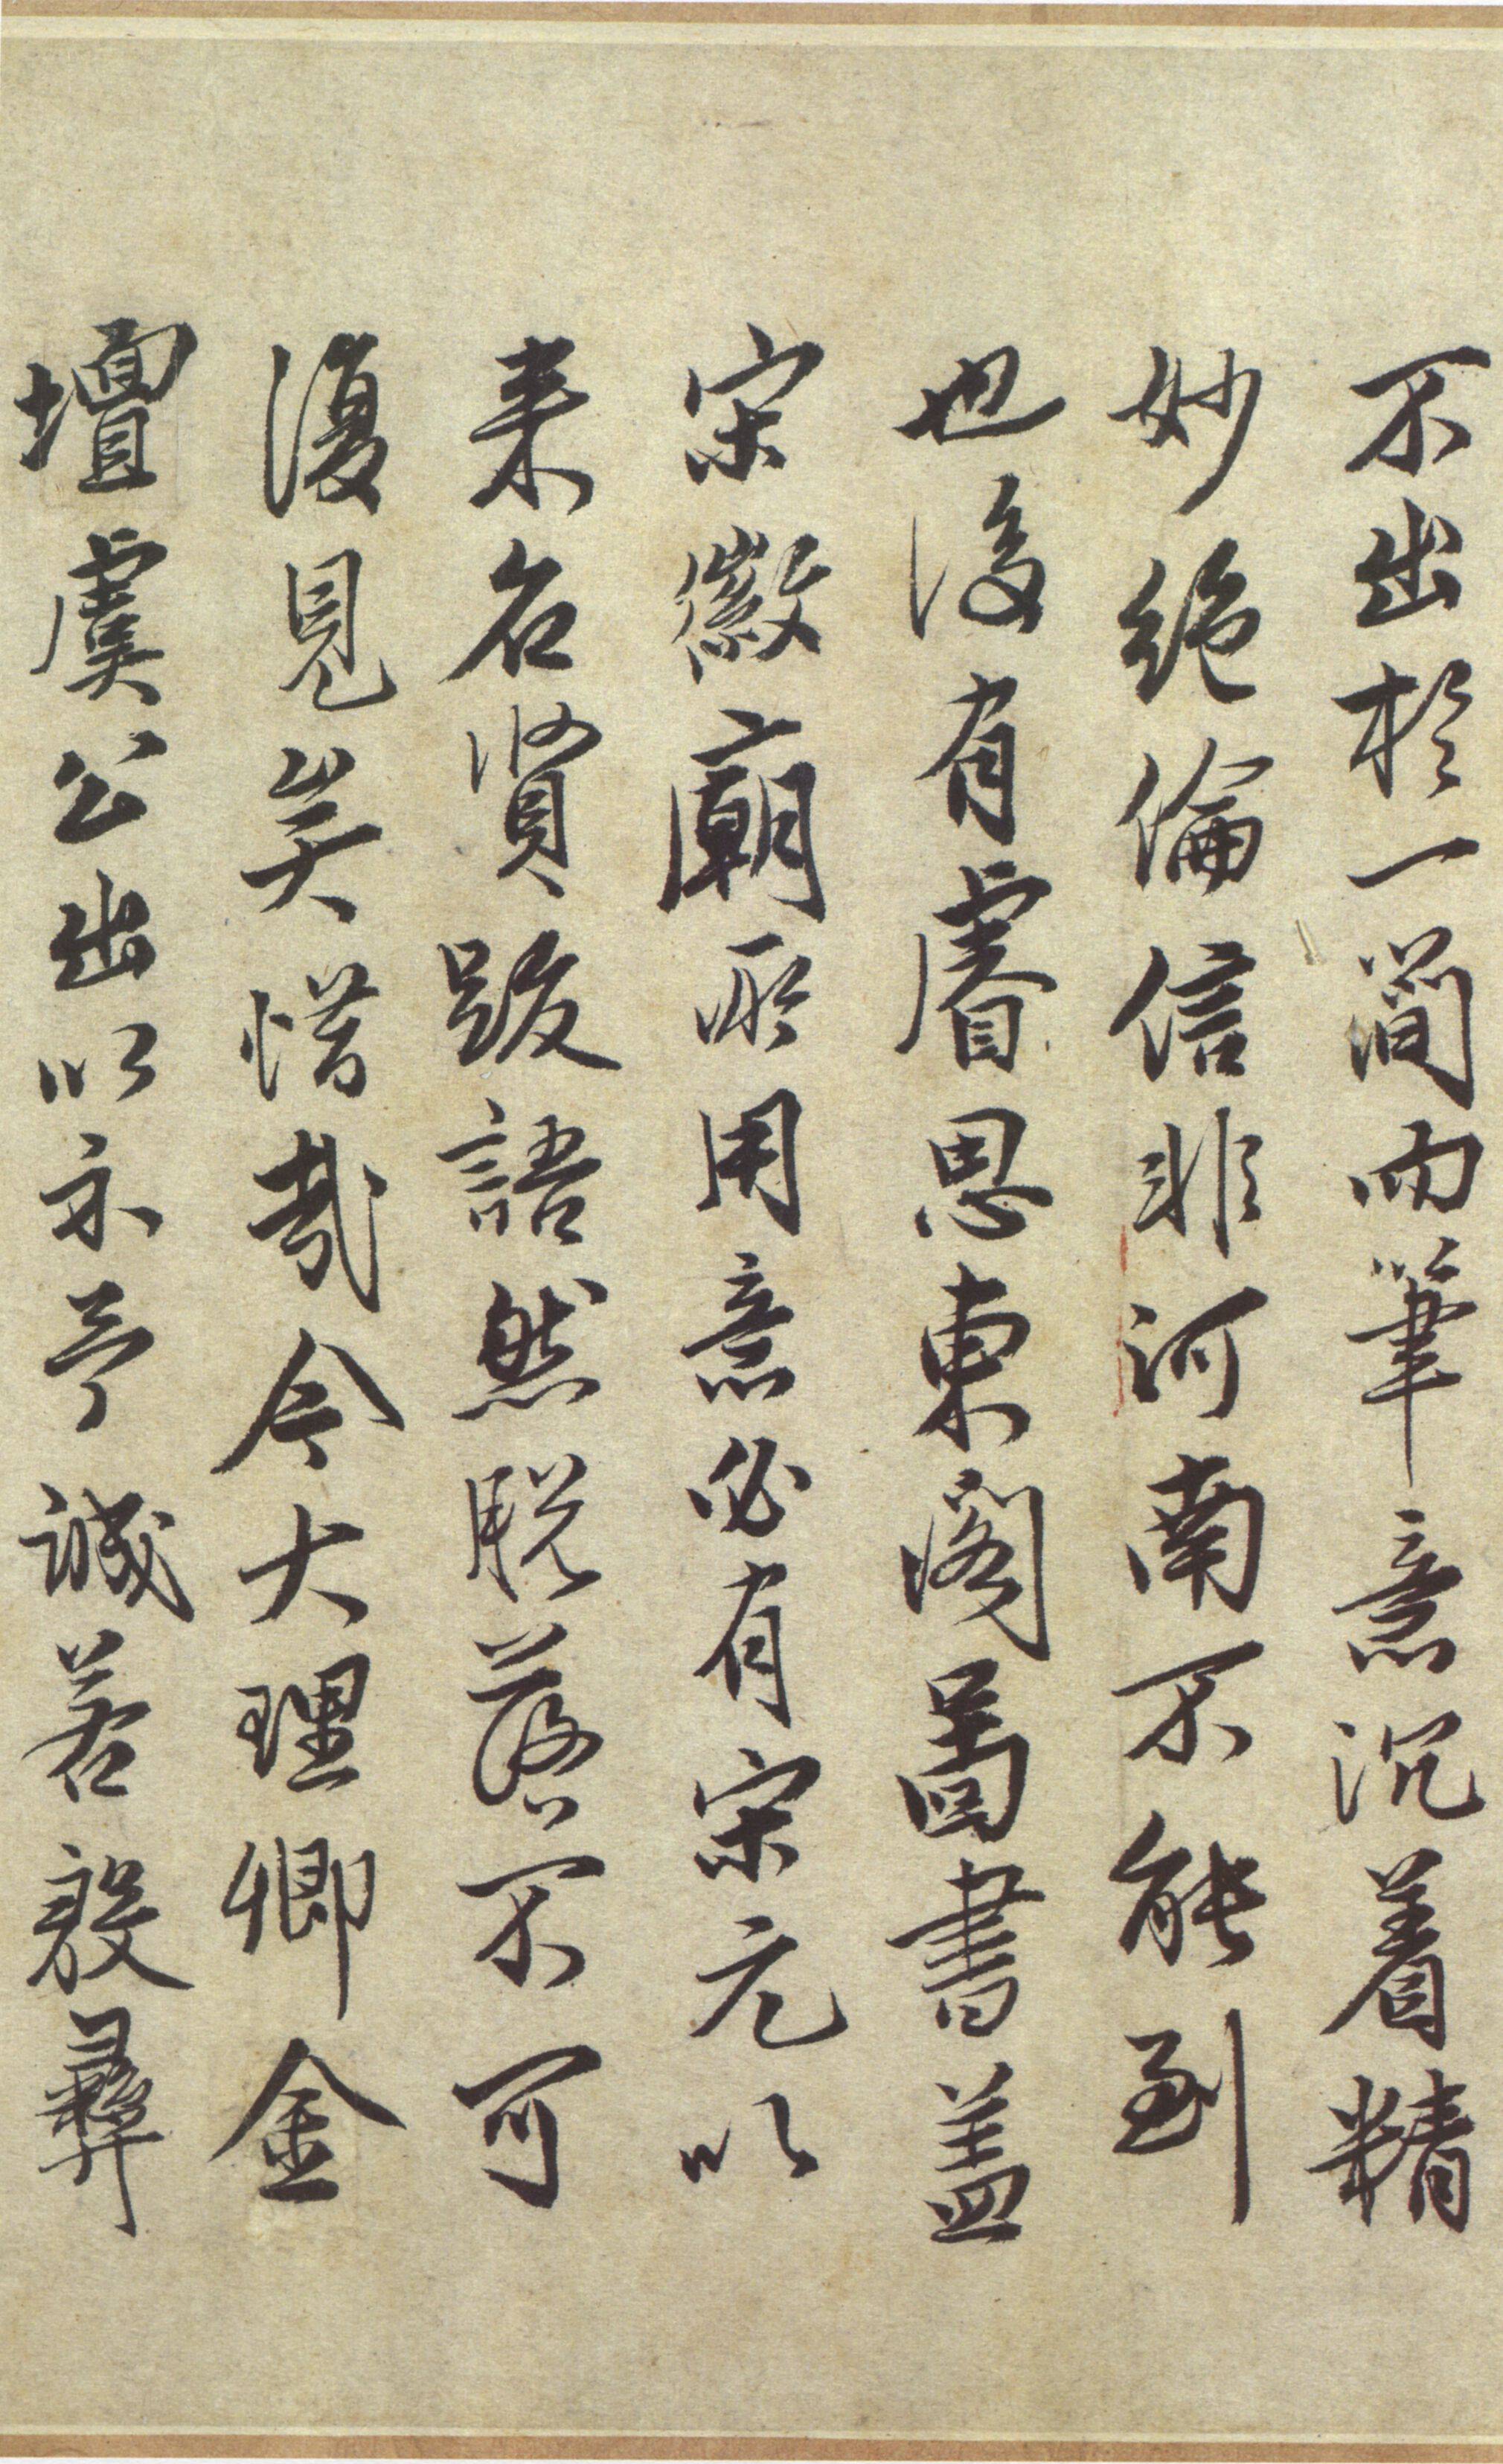 不出於一簡而筆意沉着精
妙絕倫信非河南不能到
也後有睿思東閣圖書蓋
宋徽廟所用意必有宋元以
来名賢跋語然脫落不可
復見矣惜哉今大理卿金
壇虞公出以示予誠若殷彝